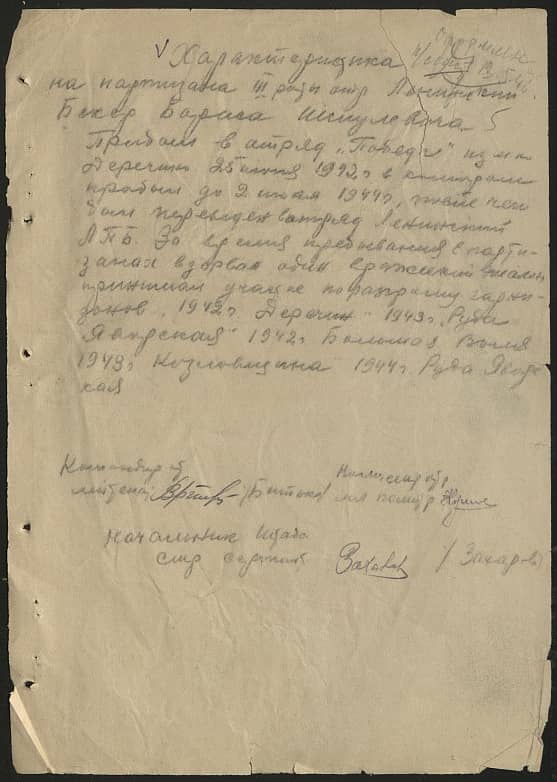 Характеристика
на партизана III роты отр Ленинский
Бекер Бориса Шмулевича
Прибыл в отряд „Победа" из м-ка
Деречин 25 июня 1942г в котором
пробыл до 2 мая 1944г, после чего
был переведен в отряд Ленинский
ЛПБ. За время пребывания в парти-
занах взорвал один вражеский эшелон
принимал участие по разгрому гарни-
зонов „1942г. Деречин" 1943г. Руда
Яворская" 1942г. Большая Воля
1943г. Козловщина" 1944г. Руда Явор-
ская
Командир отр
лейтенант /Битько/
Комиссар отр
мл политр
Начальник Штаба
стар сержант Захаров /Захаров